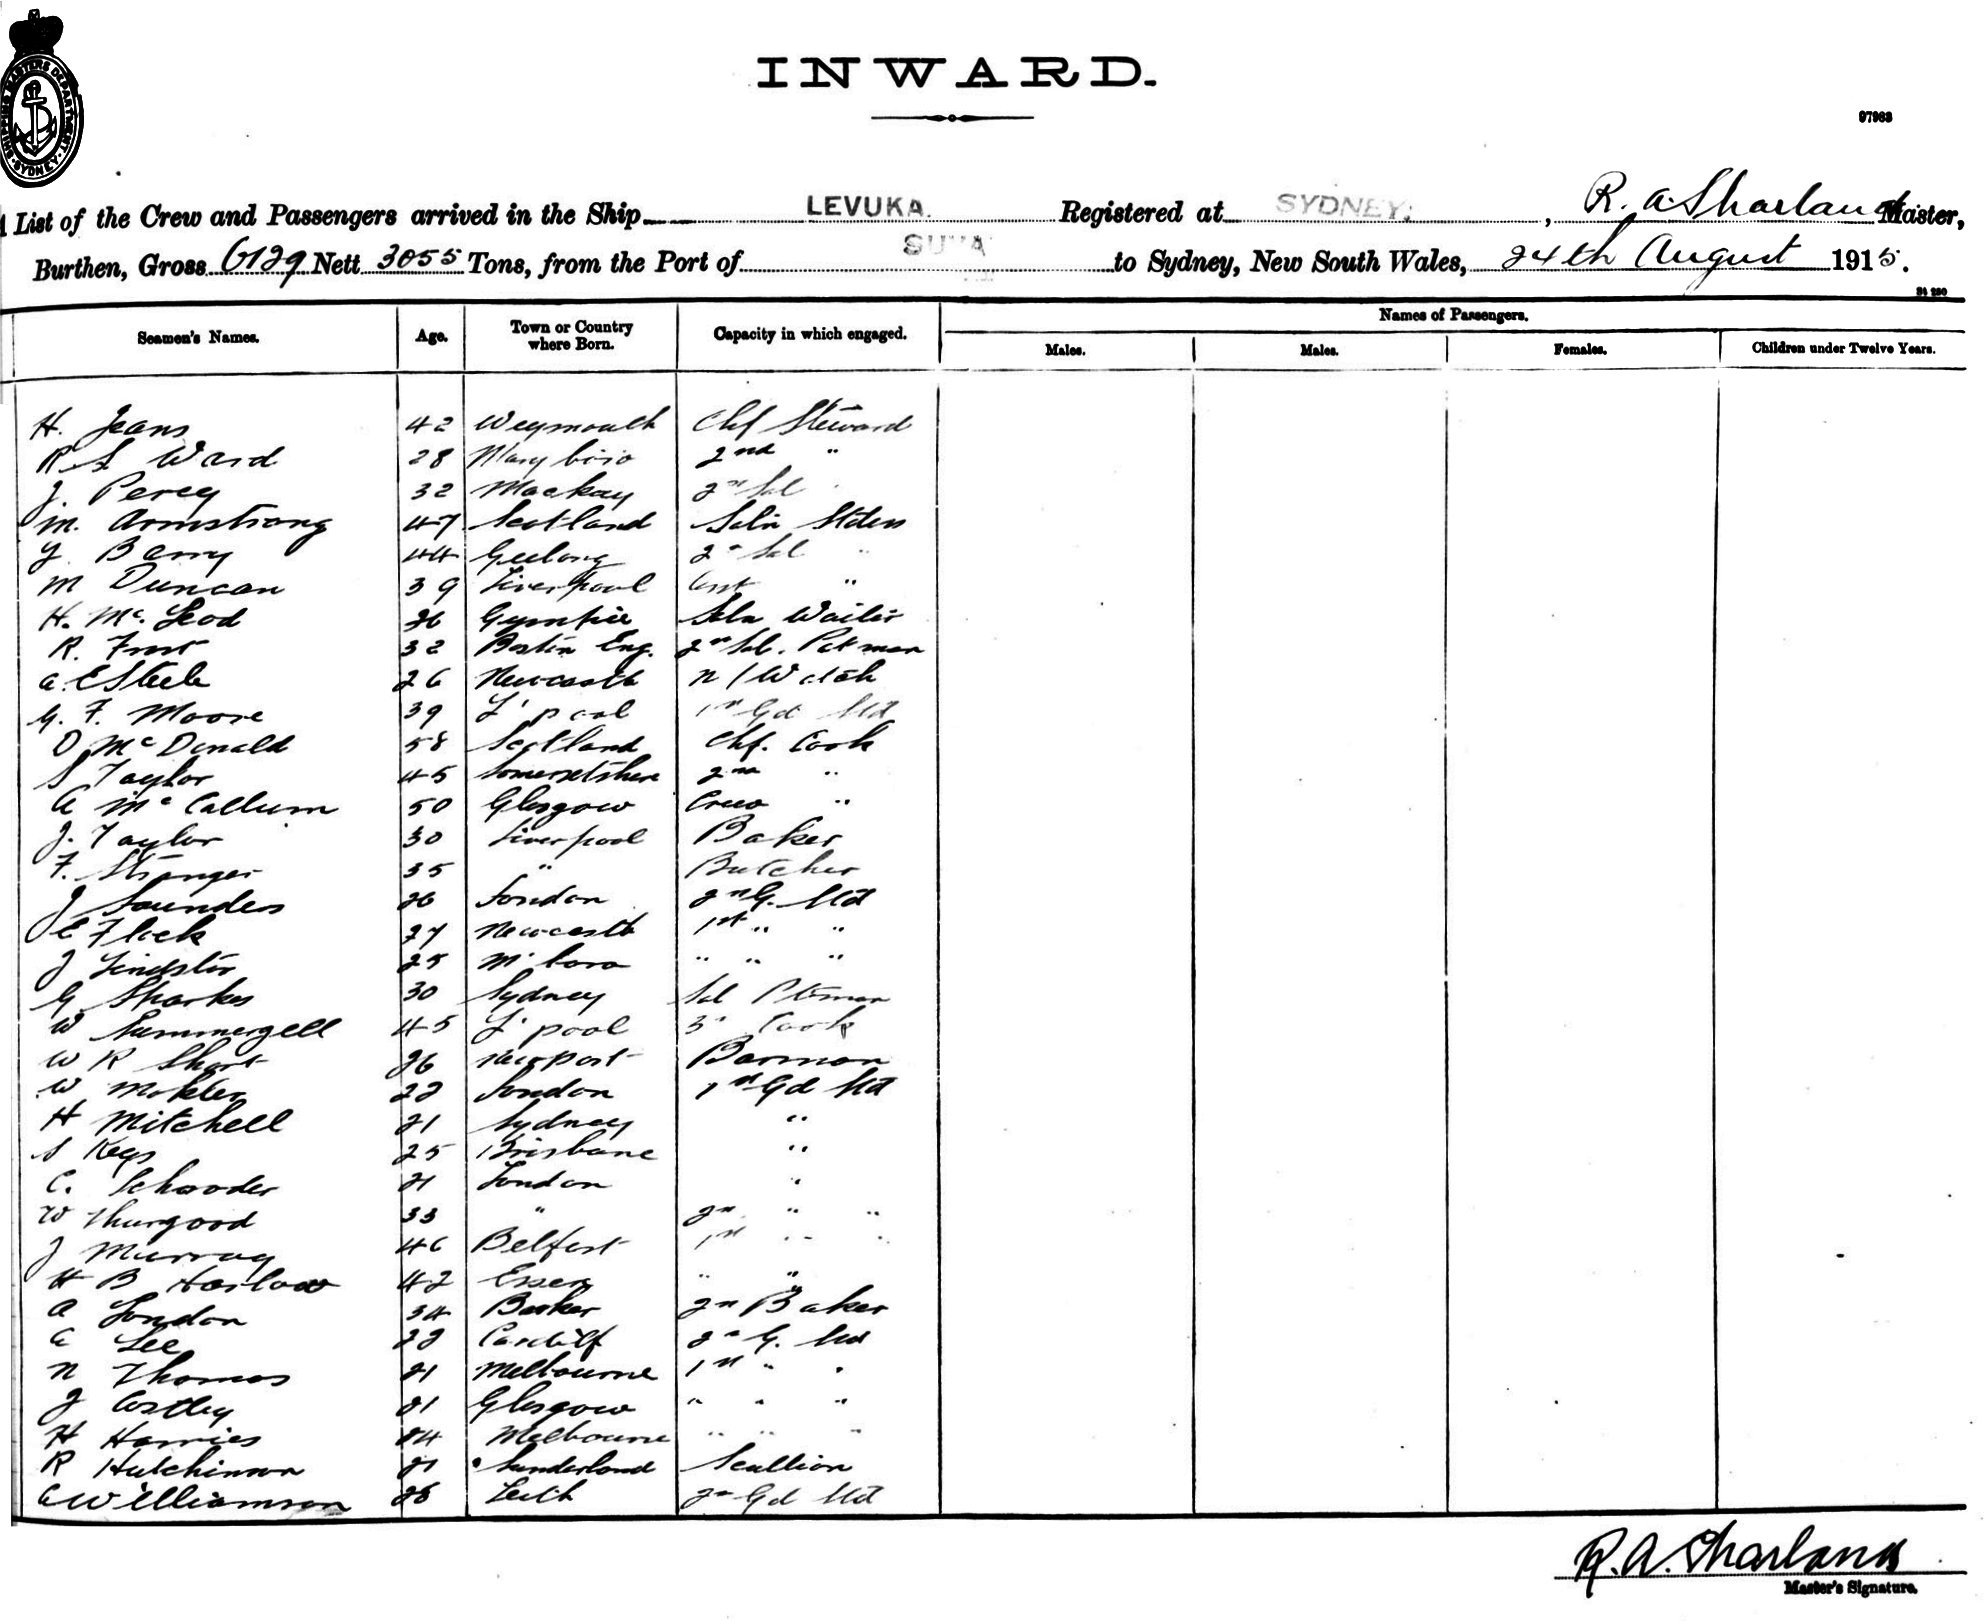 SHIPPING MASTERS DEPARTMENT SYDNEY
INWARD.
97963
List of the Crew and Passengers arrived in the Ship LEVUKA. Registered at SYDNEY. , R. A. Sharland Master,
Burthen, Gross 6129 Nett 3055 Tons, from the Port of SUVA to Sydney, New South Wales, 24th August 1915.
Seamen's Names. Age. Town or Country where Born. Capacity in which engaged. Names of Passengers.
Males. Males. Females. Children under Twelve Years.
H. Jeans 42 Weymouth Chf Steward
R S Ward 28 Maryboro 2nd "
J. Percy 32 Mackay 2n Sal
M. Armstrong 47 Scotland Saln Stdess
J. Barry 44 Geelong 2n Sal "
M Duncan 39 Liverpool Asst "
H. McLeod 26 Gympie Saln Waiter
R. Frost 32 Boston Eng. 2n Sal. Patman
A. E Steele 26 Newcastle N/Watch
G. F. Moore 39 L'pool 1st Gd Std
D McDonald 58 Scotland Chf. Cook
S Taylor 45 Somersetshire 2nd "
A McCallum 50 Glasgow Crew "
J. Taylor 30 Liverpool Baker
F. Stranger 35 " Butcher
J Saunders 26 London 2n G. Std
E Flack 27 Newcastle 1st " "
J 25 M'boro " " "
G Sharkes 30 Sydney Sal Ptman
W Summergell 45 L'pool 3rd Cook
W R Short 26 Newport Barman
W 22 London 1st Gd Std
H Mitchell 21 Sydney "
S Keys 25 Brisbane "
C. Schroder 21 London "
W Thurgood 33 " 2n " "
J Murray 46 Belfast 1st " "
H B Harlow 42 Essex " "
A London 34 2n Baker
A Lee 22 Cardiff 2n G. Std
N Thomas 21 Melbourne 1st " "
J Costley 21 Glasgow " " "
H Harries 24 Melbourne " " "
R Hutchinson 21 Sunderland Scullion
A Williamson 28 Leith 2n Gd Std
R. A. Sharland
Master's Signature.